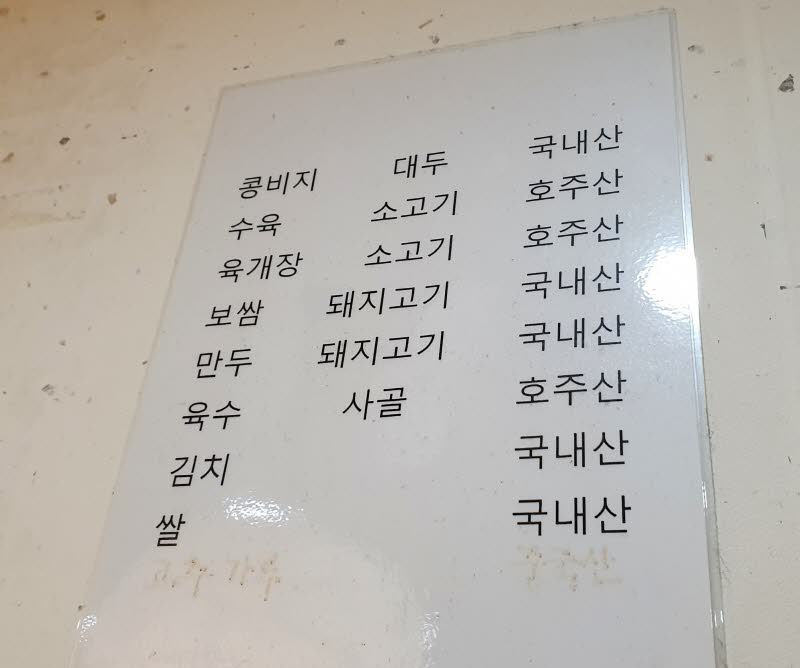 콩비지 대두 국내산
수육 소고기 호주산
육개장 소고기 호주산
보쌈 돼지고기 국내산
만두 돼지고기 국내산
육수 사골 호주산
김치 국내산
쌀 국내산
고추가루